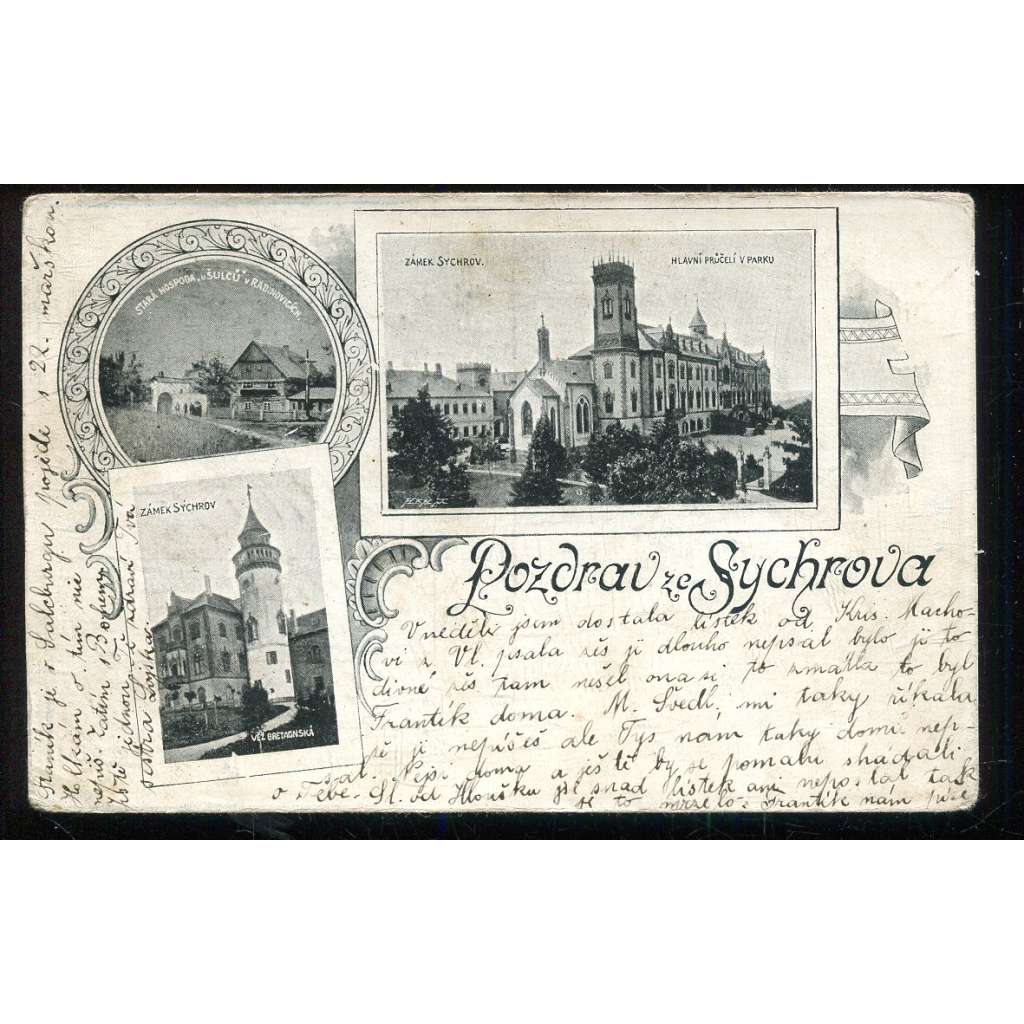 STARÁ HOSPODA „U ŠULCŮ“ V RADIMOVICÍCH.
ZÁMEK SYCHROV.
HLAVNÍ PRŮČELÍ V PARKU
ZÁMEK SÝCHROV
VĚŽ BRETAGNSKÁ
Pozdrav ze Sychrova
V neděli jsem dostala lístek od Kris. Macho-
vi z Vl. psala žes ji dlouho nepsal bylo jí to
divné žes tam nešel ona si to zmátla to byl
Frantík doma. M. Švedl. mi taky říkala
že ji nepíšeš ale Tys nám taky domů nep-
sal. Nejsi doma a ještě by se pomalu sháděli
o Tebe. Sl. od Hloušků jsi snad lístek ani neposlal tak
se to mrzelo. Frantík nám píše
Staník je v Salcburgu pojede s 22. marškou.
o tím nic
zatím s Bohem
Tě zdraví Tvá
sestra Lojska.